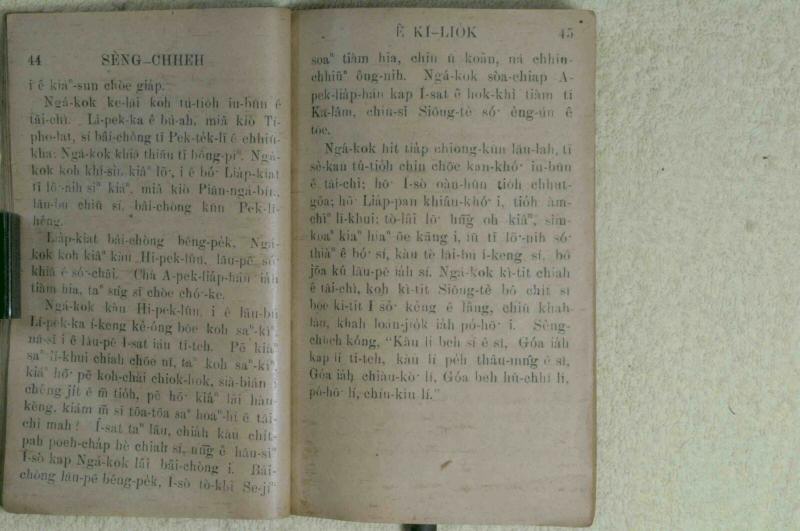 44 SÈNG-CHHEH
i ê kiaⁿ-sun chòe giáp.
Ngá-kok kè-lāi koh tú-tio̍h iu-būn ê
tāi-chì. Lī-pek-ka ê bú-ah, miâ kiò Tí-
pho-lat, sí bâi-chòng tī Pek-te̍k-lī ê chhiū-
kha; Ngá-kok khiā thiāu tī bōng-piⁿ. Ngá-
kok koh khí-sin kiâⁿ lō͘, i ê bó͘ Lia̍p-kiat
tī lō͘-nih siⁿ kiáⁿ, miâ kiò Piān-ngá-bín,
lāu-bú chiū sí, bâi-chòng kūn Pek-lī-
hêng.
Lia̍p-kiat bâi-chòng bêng-pe̍k, Ngá-
kok koh kiâⁿ kàu Hi-pek-lûn, lāu-pē só͘
khiā ê só͘-chāi. Chá A-pek-lia̍p-hán iáh
tiàm hia, taⁿ sǹg sī chòe chó͘-ke.
Ngá-kok kàu Hi-pek-lûn, i ê lāu-bú
Lī-pek-ka í-keng kè-óng bōe koh saⁿ-kìⁿ,
ná-sī i ê lāu-pē Í-sat iáu tī-teh. Pē kiáⁿ
saⁿ lī-khui chiah chōe nî, taⁿ koh saⁿ-kìⁿ,
kiáⁿ hō͘ pē koh-chài chiok-hok, sià-bián i
chêng ji̍t ê m̄ tio̍h, pē hō͘ kiáⁿ lâi hàu-
kèng, kiám m̄ sī tōa-tōa saⁿ hoaⁿ-hí ê tāi-
chì mah? Í-sat taⁿ lāu, chia̍h kàu chi̍t-
pah poeh-cha̍p hè chiah sí, nn̄g ê hāu-siⁿ
Í-só kap Ngá-kok lâi bâi-chòng i. Bâi-
chòng lāu-pē bêng-pe̍k, Í-só tò-khì Se-jíⁿ
Ê KÌ-LIO̍K 45
soaⁿ tiàm hia, chiū ū koân, ná chhin-
chhiūⁿ ông-nih. Ngá-kok sòa-chiap A-
pek-lia̍p-hán kap Í-sat ê hok-khì tiàm tī
Ka-lâm, chiū-sī Siōng-tè só͘ èng-ún ê
tōe.
Ngá-kok hit tia̍p chiong-kūn lāu-lah, tī
sè-kan tú-tio̍h chin chōe kan-khó͘ iu-būn
ê tāi-chì; hō͘ Í-só oàn-hūn tio̍h chhut-
gōa; hō͘ Lia̍p-pan khiàu-khó͘ i, tio̍h àm-
chīⁿ lī-khui; tò-lâi lō͘ hn̄g oh kiâⁿ, sim-
koaⁿ kiaⁿ hiaⁿ ōe kāng i, iū tī lō͘-nih só͘
thiàⁿ ê bó͘ sí, kàu tè lāu-bú í-keng sí, bô
jōa kú lāu-pē ia̍h sí. Ngá-kok kì-tit chiah
ê tāi-chì, koh kì-tit Siōng-tè bô chi̍t sî
bōe kì-tit I só͘ kéng ê lâng, chiū khah-
lâu, khah loān-jio̍k ia̍h pó-hō͘ i. Sèng-
chheh kóng, "Kàu lí beh sí ê, Góa iáh
kap lí tī-teh, kàu lí pe̍h thâu-mn̂g ê sî,
Góa ia̍h chiàu-kò͘ lí, Góa beh hû-chhî lí,
pó-hō͘ lí, chín-kiù lí."